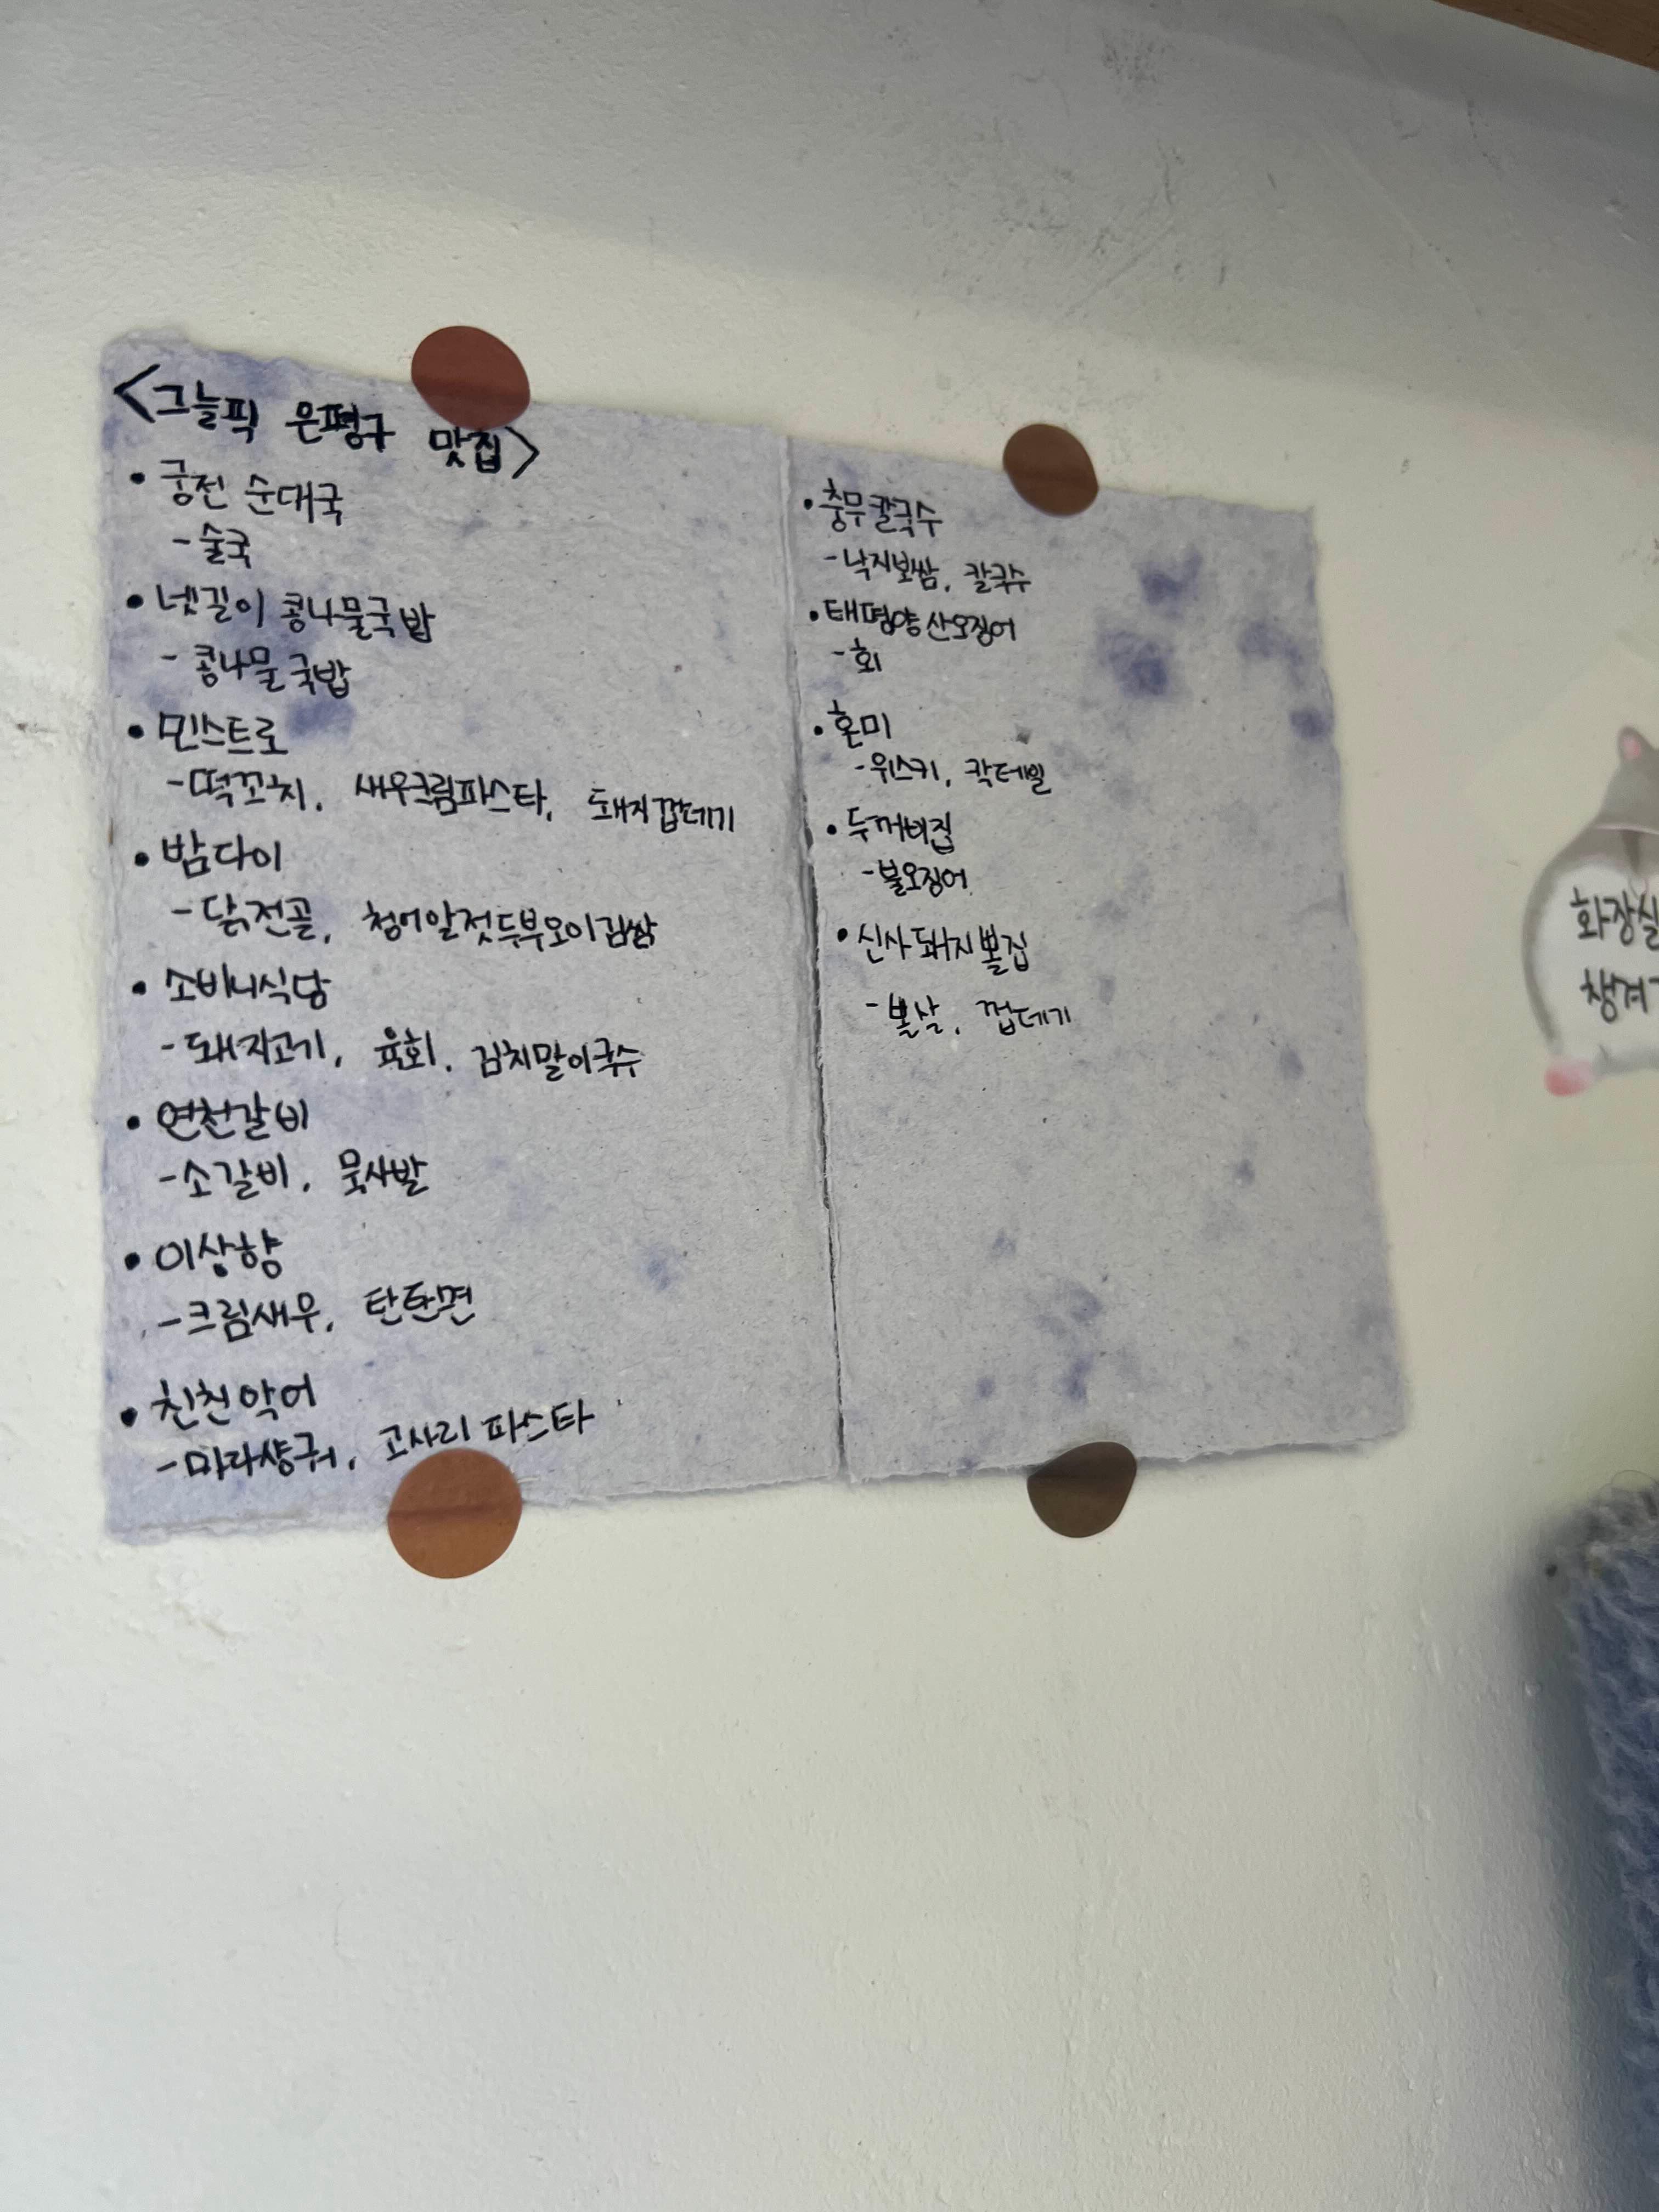 <그늘픽 은평구 맛집>
• 궁전 순대국
- 술국
• 넷길이 콩나물국밥
- 콩나물국밥
• 민스트로
- 떡꼬치, 새우크림파스타, 돼지껍데기
• 밤다이
- 닭전골, 청어알젓두부오이김쌈
• 소비니식당
- 돼지고기, 육회, 김치말이국수
• 연천갈비
- 소갈비, 묵사발
• 이상향
- 크림새우, 탄탄면
• 친친악어
- 마라샹궈, 고사리 파스타
• 충무칼국수
- 낙지보쌈, 칼국수
• 태평양 산오징어
- 회
• 혼미
- 위스키, 칵테일
• 두꺼비집
- 불오징어
• 신사돼지뽈집
- 볼살, 껍데기
화장실
챙겨